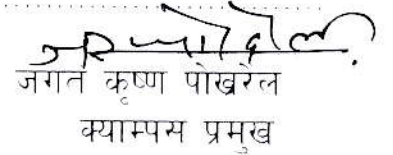 जगत कृष्ण पोखरेल
क्याम्पस प्रमुख